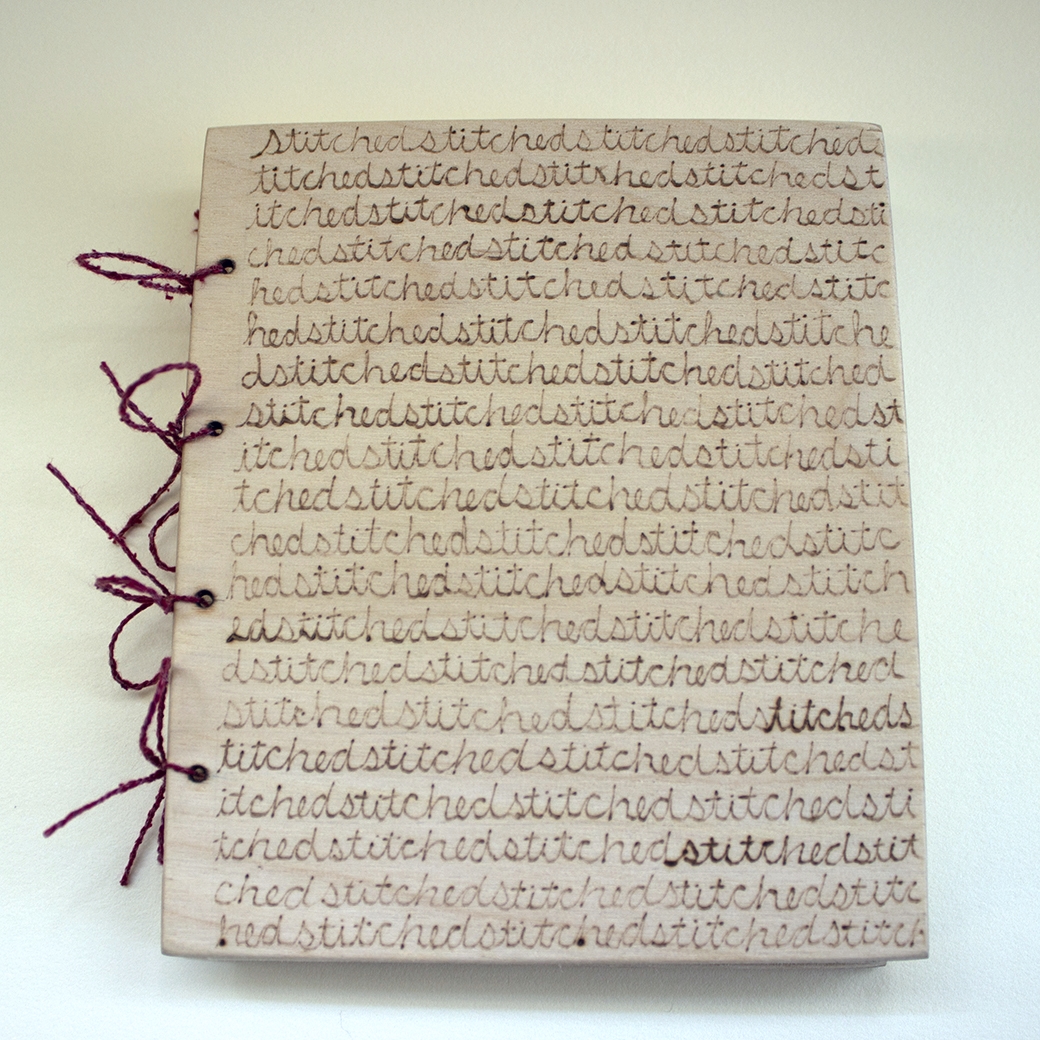 stitchedstitchedstitchedstitcheds
titchedstitchedstitchedstitchedst
itchedstitchedstitchedstitchedsti
chedstitchedstitchedstitchedstitc
hedstitchedstitchedstitchedstitc
hedstitchedstitchedstitchedstitche
dstitchedstitchedstitchedstitched
stitchedstitchedstitchedstitchedst
itchedstitchedstitchedstitchedsti
tchedstitchedstitchedstitchedstit
chedstitchedstitchedstitchedstitc
hedstitchedstitchedstitchedstitch
edstitchedstitchedstitchedstitche
dstitchedstitchedstitchedstitched
stitchedstitchedstitchedstitcheds
titchedstitchedstitchedstitchedst
itchedstitchedstitchedstitchedsti
tchedstitchedstitchedstitchedstit
ched stitchedstitchedstitchedstitc
hedstitchedstitchedstitchedstitch